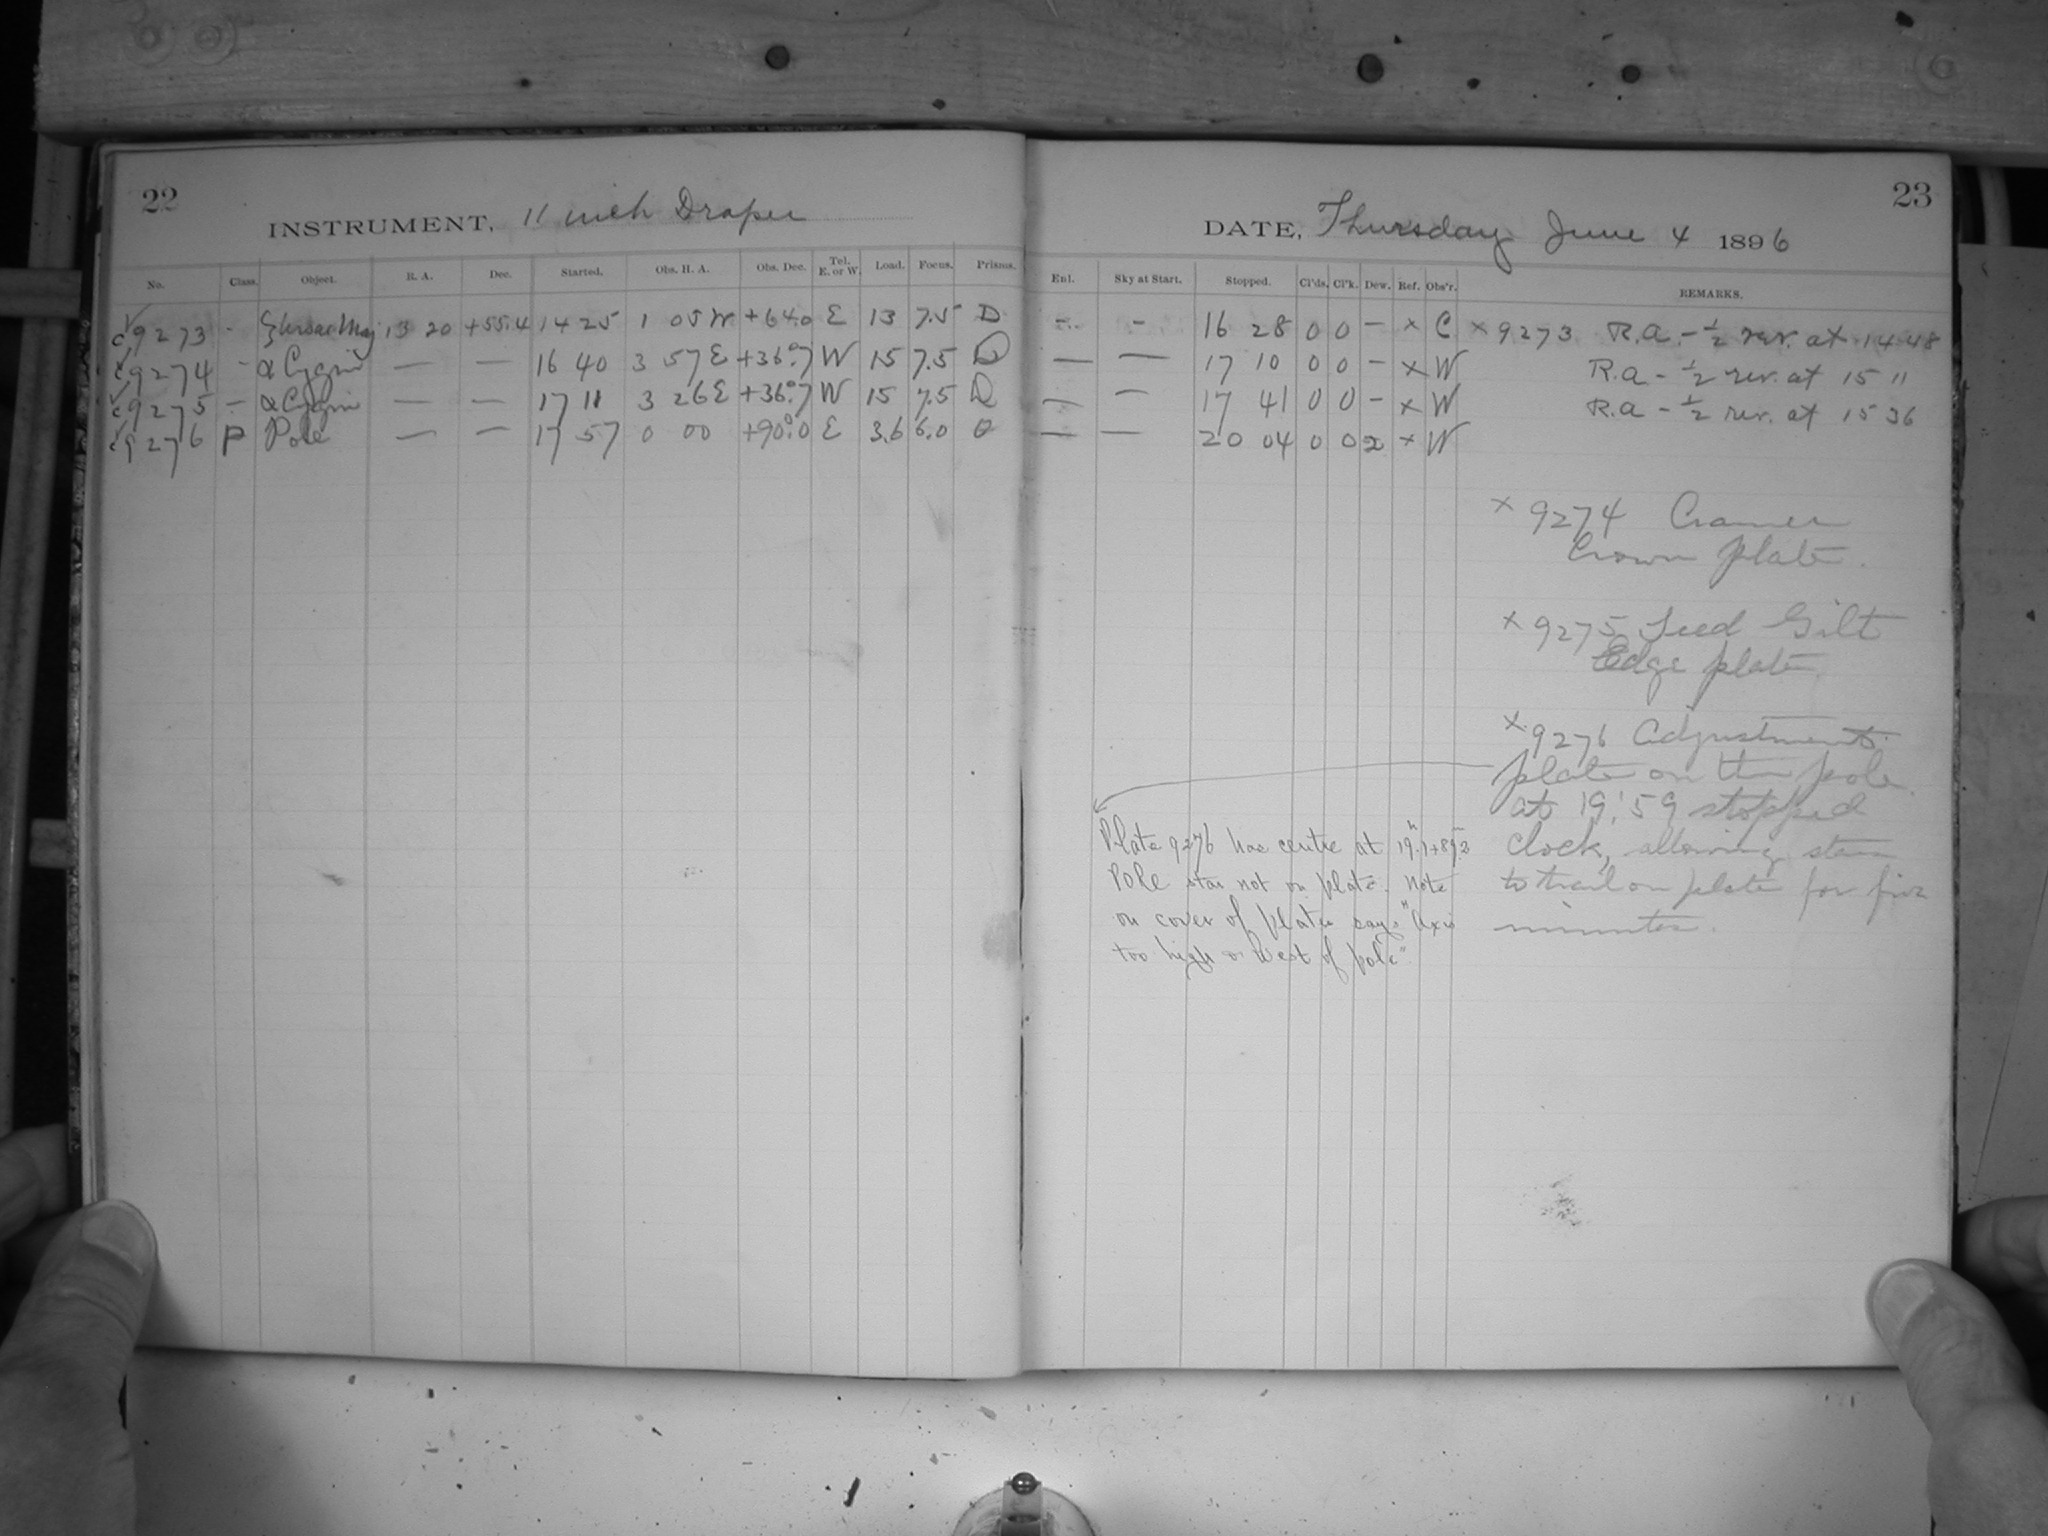 22
INSTRUMENT, 11 inch Draper
No. Class. Object. R. A. Dec. Started. Obs. H. A. Obs. Dec. Tel. E. or W. Load. Focus. Prisms.
c9273 - ζ Ursae Maj 13 20 +55.4 14 25 1 05 W +64.0 E 13 7.5 D
c9274 - α Cygni — — 16 40 3 57 E +36°.7 W 15 7.5 D
c9275 — α Cygni — — 17 11 3 26 E +36°.7 W 15 7.5 D
c9276 P Pole — — 17 57 0 00 +90°.0 E 3.6 6.0 0
23
DATE, Thursday June 4 1896
Enl. Sky at Start. Stopped. Cl'ds. Cl'k. Dew. Ref. Obs'r. REMARKS.
- - 16 28 0 0 - × C × 9273 R.A. - ½ rev. at 14 48
— — 17 10 0 0 - × W R.A - ½ rev. at 15 11
— — 17 41 0 0 - × W R.A - ½ rev. at 15 36
— — 20 04 0 0 2 × W
× 9274 Cramer
Crown plate.
× 9275 Seed Gilt
Edge plate
× 9276 Adjustment
plate on the pole.
at 19:59 stopped
clock, allowing stars
to trail on plate for five
minutes.
Plate 9276 has centre at 19h.1+89.2
Pole star not on plate. Note
on cover of plate says "Axis
too high or West of pole".